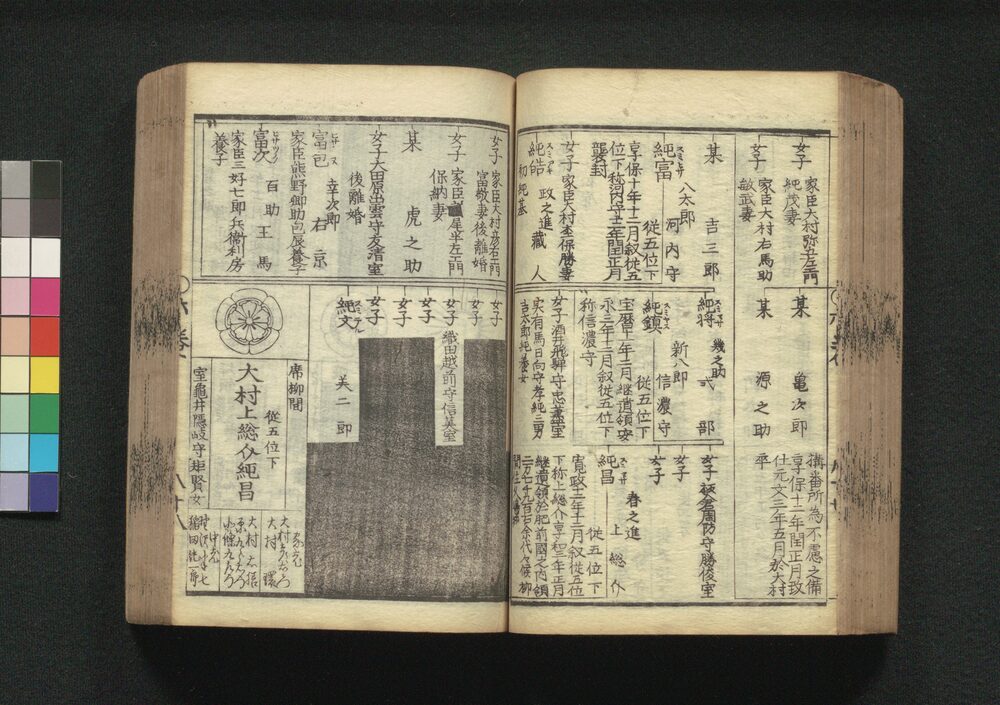 女子
家臣大村弥五左エ門
純茂妻
女子
家臣大村右馬助
敏武妻
某
吉三郎
純富
八太郎
河内守
従五位下
享保十年十二月叙従五
位下称河内守十二年閏正月
襲封
女子家臣大村
保勝妻
純皓
政之進
蔵人
初純基
某
亀次郎
某
源之助
純将
幾之助
式部
純鎮
新八郎
信濃守
従五位下
宝暦
年二月継遺領安
永三年十二月叙従五位下
称信濃守
女子
酒井飛騨守忠
室
実有馬日向守孝純三男
吉太郎純
養女
構番所為不慮之備
享保十二年閏正月致
仕元文三年五月於大村
卒
女子
板倉周防守勝俊室
女子
女子
純昌
春之進
上総介
従五位下
寛政十二年十二月叙従五位
下称上総介享和三年正月
継遺領於肥前国之内領
二万七千九百石余代々候柳
間
女子
家臣大村彦右エ門
富敬妻後離婚
女子
家臣
尾半左エ門
保納妻
某
虎之助
女子
大田原出雲守友清室
後離婚
富包
幸次郎
右京
家臣熊野御助包辰養子
富次
百助
王馬
家臣三好七郎兵衛利房
養子
女子
女子
女子
織田越前守信美室
女子
女子
純文
美二郎
席柳間
従五位下
大村上総介純昌
室亀井隠岐守矩賢女
大村
大村
環
大村